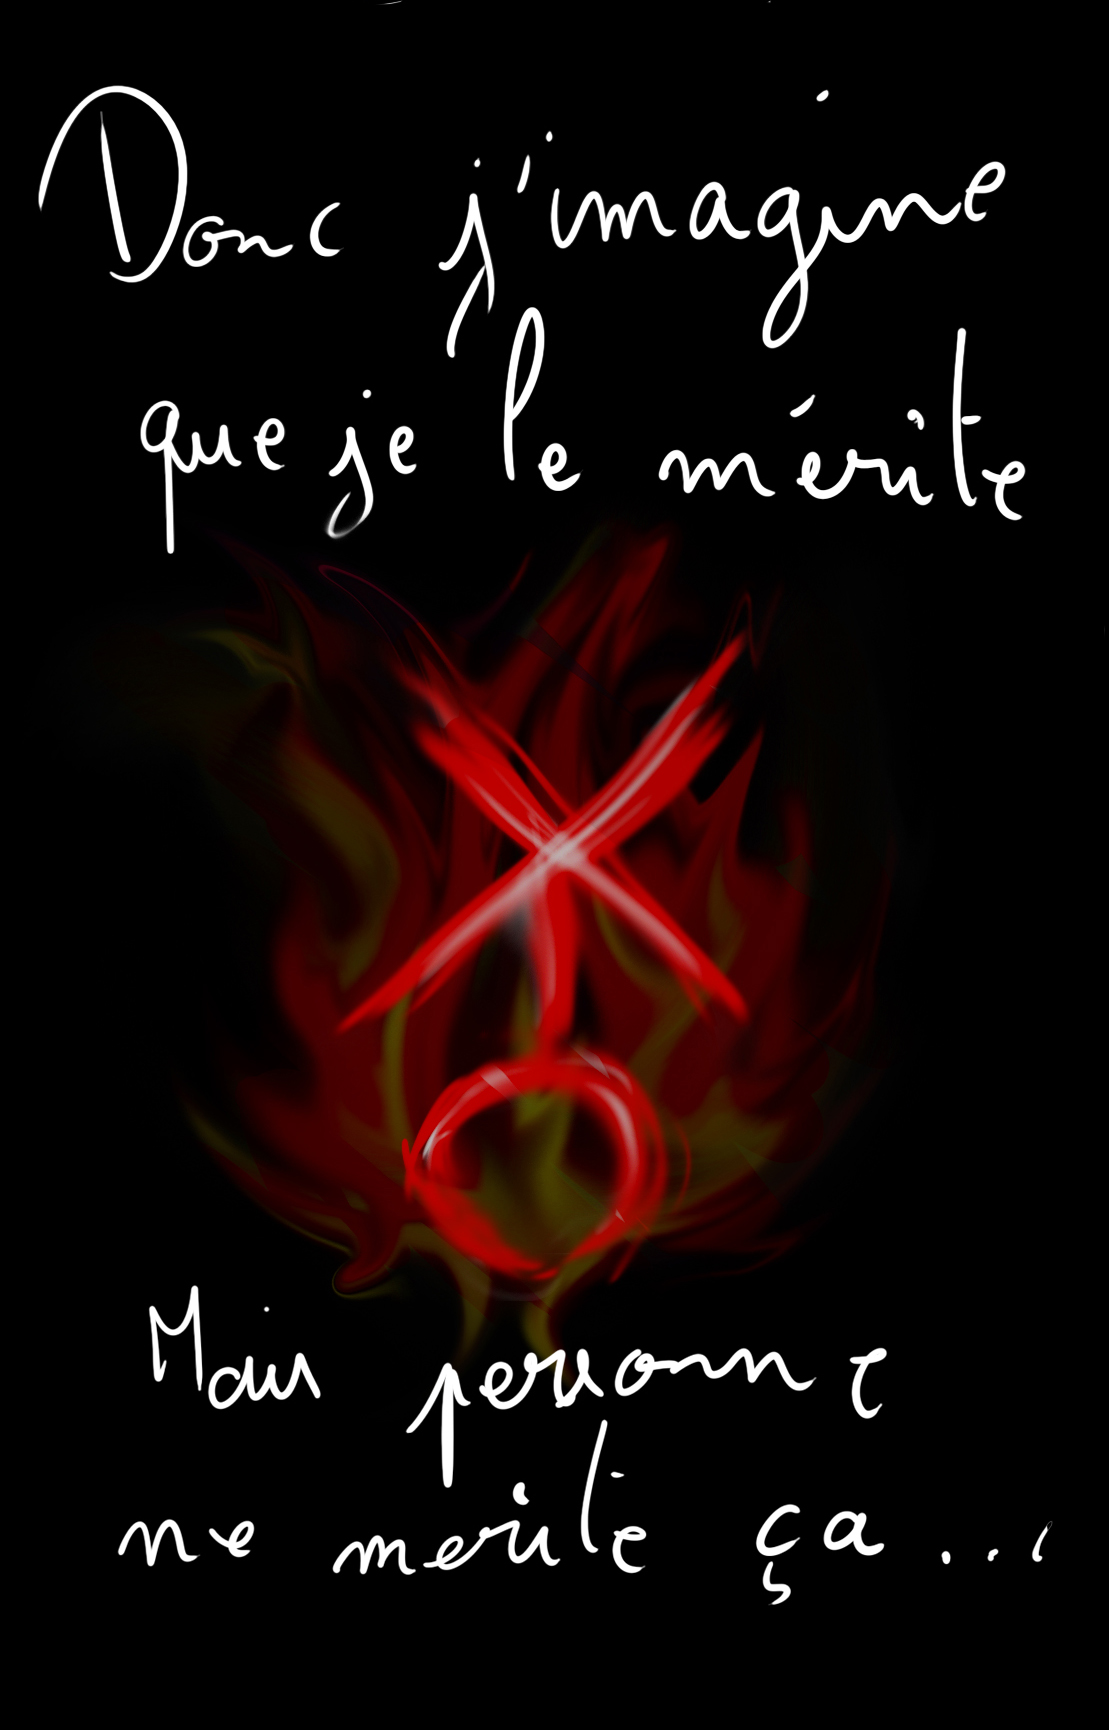 Donc j'imagine
que je le mérite
Mais personne
ne merite ça...